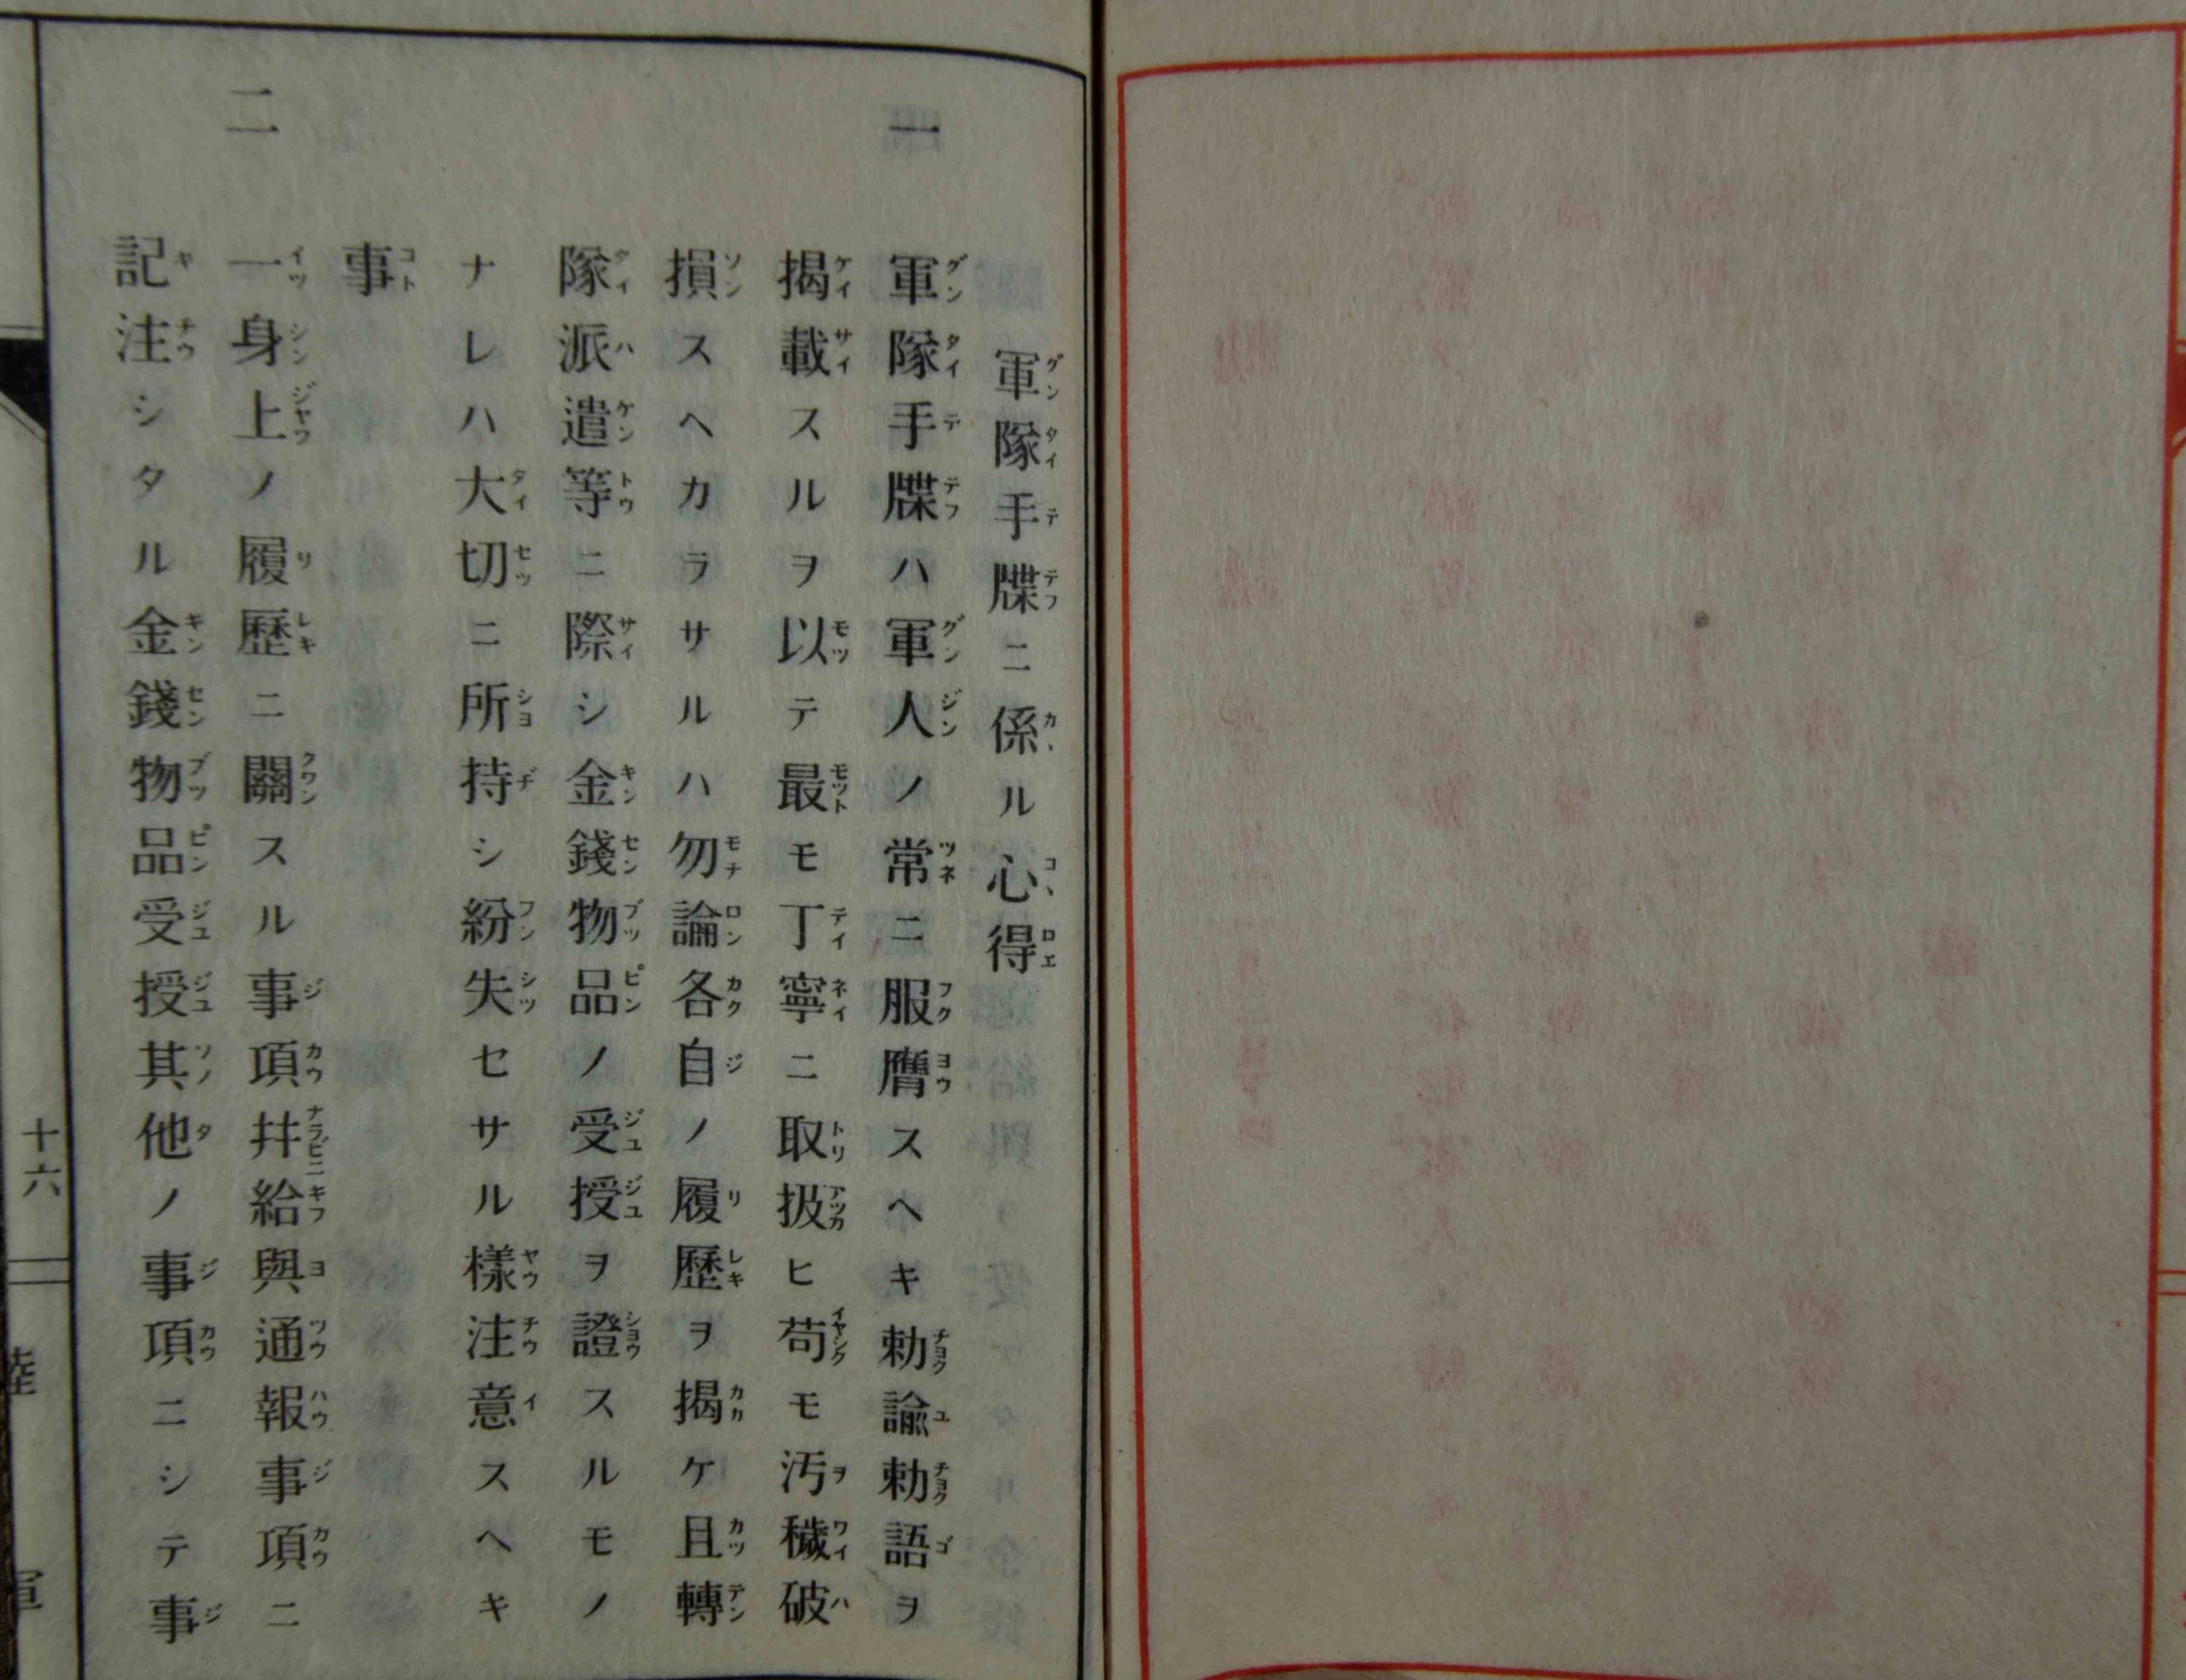 軍隊手牒ニ係ル心得
一 軍隊手牒ハ軍人ノ常ニ服膺スヘキ勅諭勅語ヲ
揭載スルヲ以テ最モ丁寧ニ取扱ヒ苟モ汚穢破
損スヘカラサルハ勿論各自ノ履歷ヲ揭ケ且轉
隊派遣等ニ際シ金錢物品ノ受授ヲ證スルモノ
ナレハ大切ニ所持シ紛失セサル樣注意スヘキ
事
二 一身上ノ履歷ニ關スル事項幷給與通報事項ニ
記注シタル金錢物品受授其他ノ事項ニシテ事
十六
陸
軍